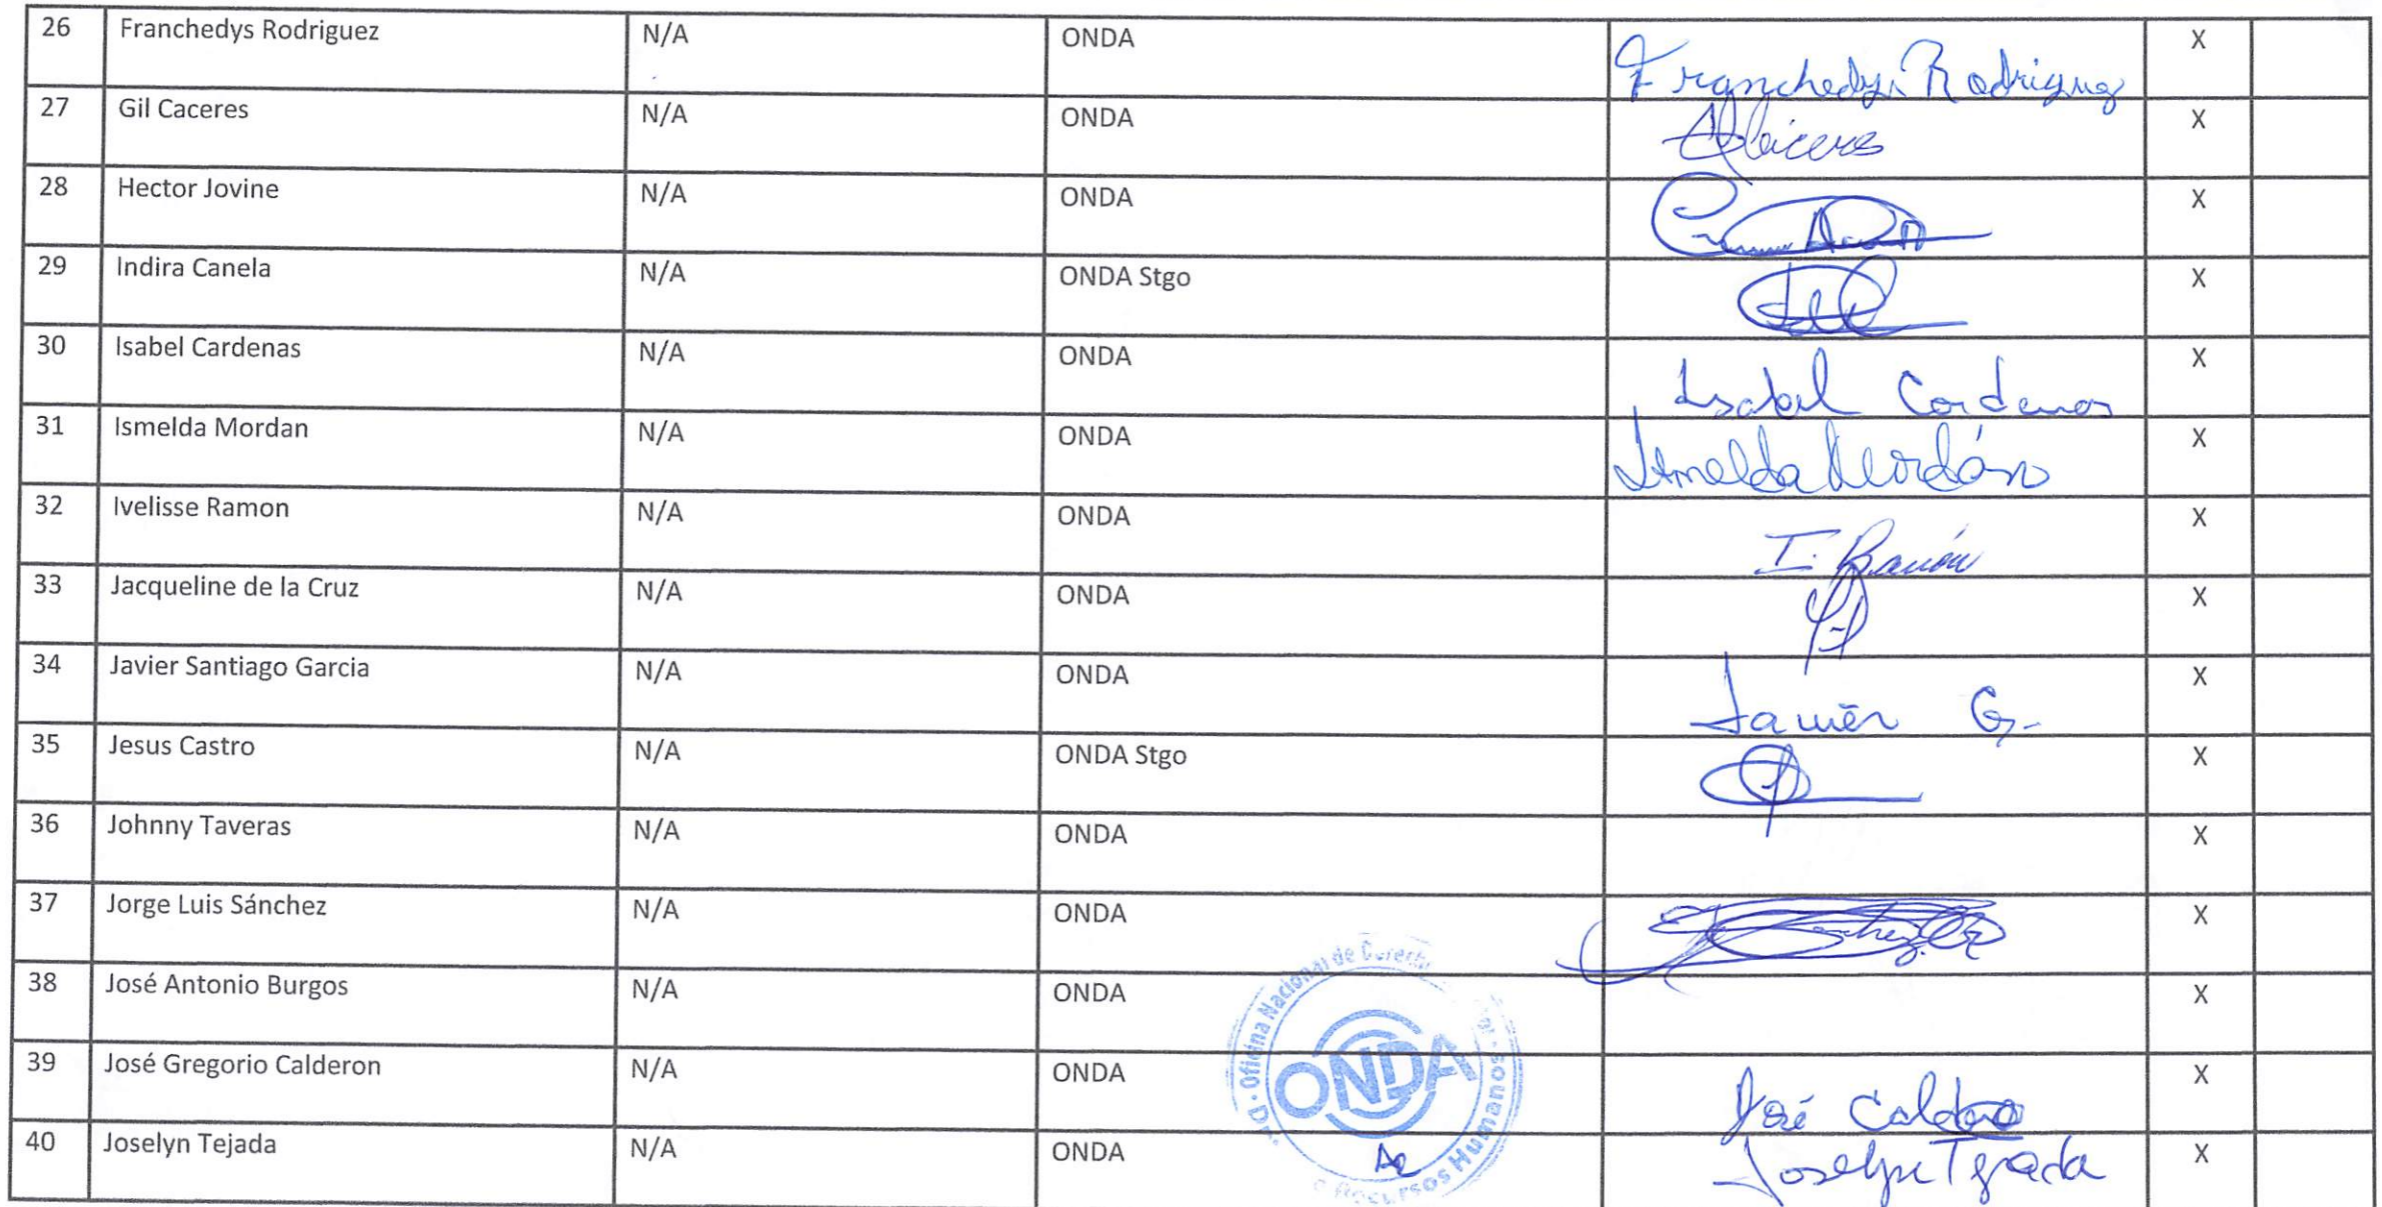 26 Franchedys Rodriguez N/A ONDA Franchedys Rodriguez X
27 Gil Caceres N/A ONDA X
28 Hector Jovine N/A ONDA X
29 Indira Canela N/A ONDA Stgo X
30 Isabel Cardenas N/A ONDA Isabel Cardenas X
31 Ismelda Mordan N/A ONDA Ismelda Mordán X
32 Ivelisse Ramon N/A ONDA I. Ramón X
33 Jacqueline de la Cruz N/A ONDA X
34 Javier Santiago Garcia N/A ONDA Javier G. X
35 Jesus Castro N/A ONDA Stgo X
36 Johnny Taveras N/A ONDA X
37 Jorge Luis Sánchez N/A ONDA X
38 José Antonio Burgos N/A ONDA X
39 José Gregorio Calderon N/A ONDA José X
40 Joselyn Tejada N/A ONDA Joselyn Tejada X
Oficina Nacional de
ONDA
Recursos Humanos